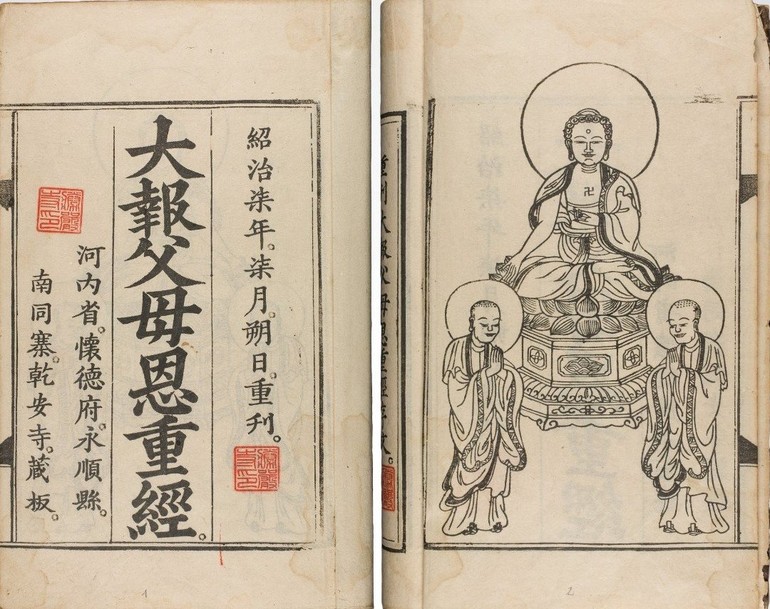 紹治柒年。柒月。朔日。重刊。
大報父母恩重經。
河内省。懷德府。永順縣。
南同寨。乾安寺。蔵板。
1
重刊大報父母恩重經序文。
卍
2